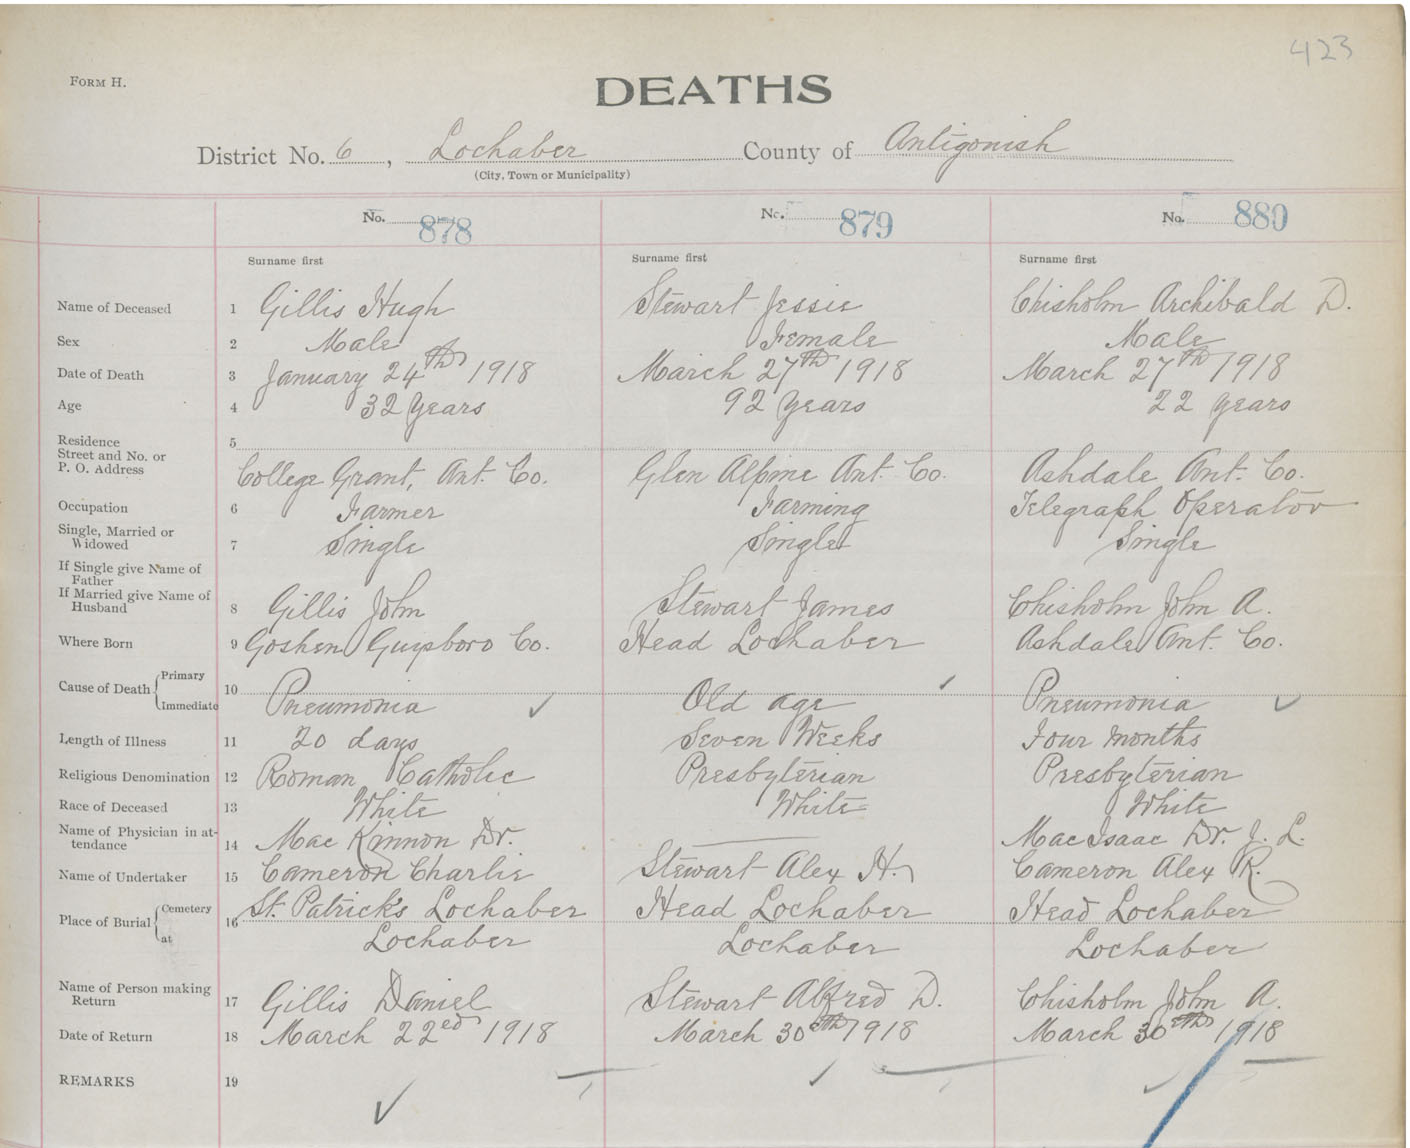 423
FORM H.
DEATHS
District No. 6, Lochaber County of Antigonish
(City, Town or Municipality)
No. 878 No. 879 No. 880
Surname first Surname first Surname first
Name of Deceased 1 Gillis Hugh Stewart Jessie Chisholm Archibald D.
Sex 2 Male Female Male
Date of Death 3 January 24th 1918 March 27th 1918 March 27th 1918
Age 4 32 years 92 years 22 years
Residence 5
Street and No. or
P. O. Address College Grant, Ant. Co. Glen Alpine Ant. Co. Ashdale Ant. Co.
Occupation 6 Farmer Farming Telegraph Operator
Single, Married or
Widowed 7 Single Single Single
If Single give Name of
Father
If Married give Name of
Husband 8 Gillis John Stewart James Chisholm John A.
Where Born 9 Goshen Guysboro Co. Head Lochaber Ashdale Ant. Co.
Primary
Cause of Death 10
Immediate Pneumonia ✓ Old age ✓ Pneumonia ✓
Length of Illness 11 20 days Seven Weeks Four Months
Religious Denomination 12 Roman Catholic Presbyterian Presbyterian
Race of Deceased 13 White White White
Name of Physician in at-
tendance 14 Mac Kinnon Dr. — Mac Isaac Dr. J. L.
Name of Undertaker 15 Cameron Charlie Stewart Alex H. Cameron Alex R.
Cemetery
Place of Burial 16 St. Patrick's Lochaber Head Lochaber Head Lochaber
at Lochaber Lochaber Lochaber
Name of Person making
Return 17 Gillis Daniel Stewart Alfred D. Chisholm John A.
Date of Return 18 March 22ed 1918 March 30th 1918 March 30th 1918
REMARKS 19 ✓ ✓ ✓